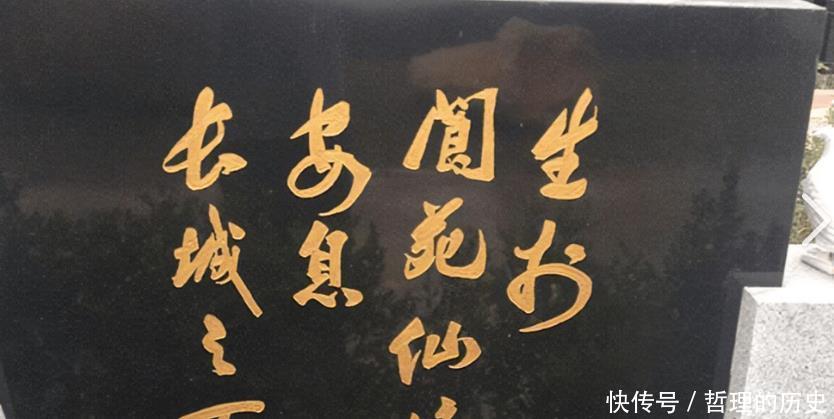 生於
阆苑仙
安息
长城之
快传号 / 哲理的历史